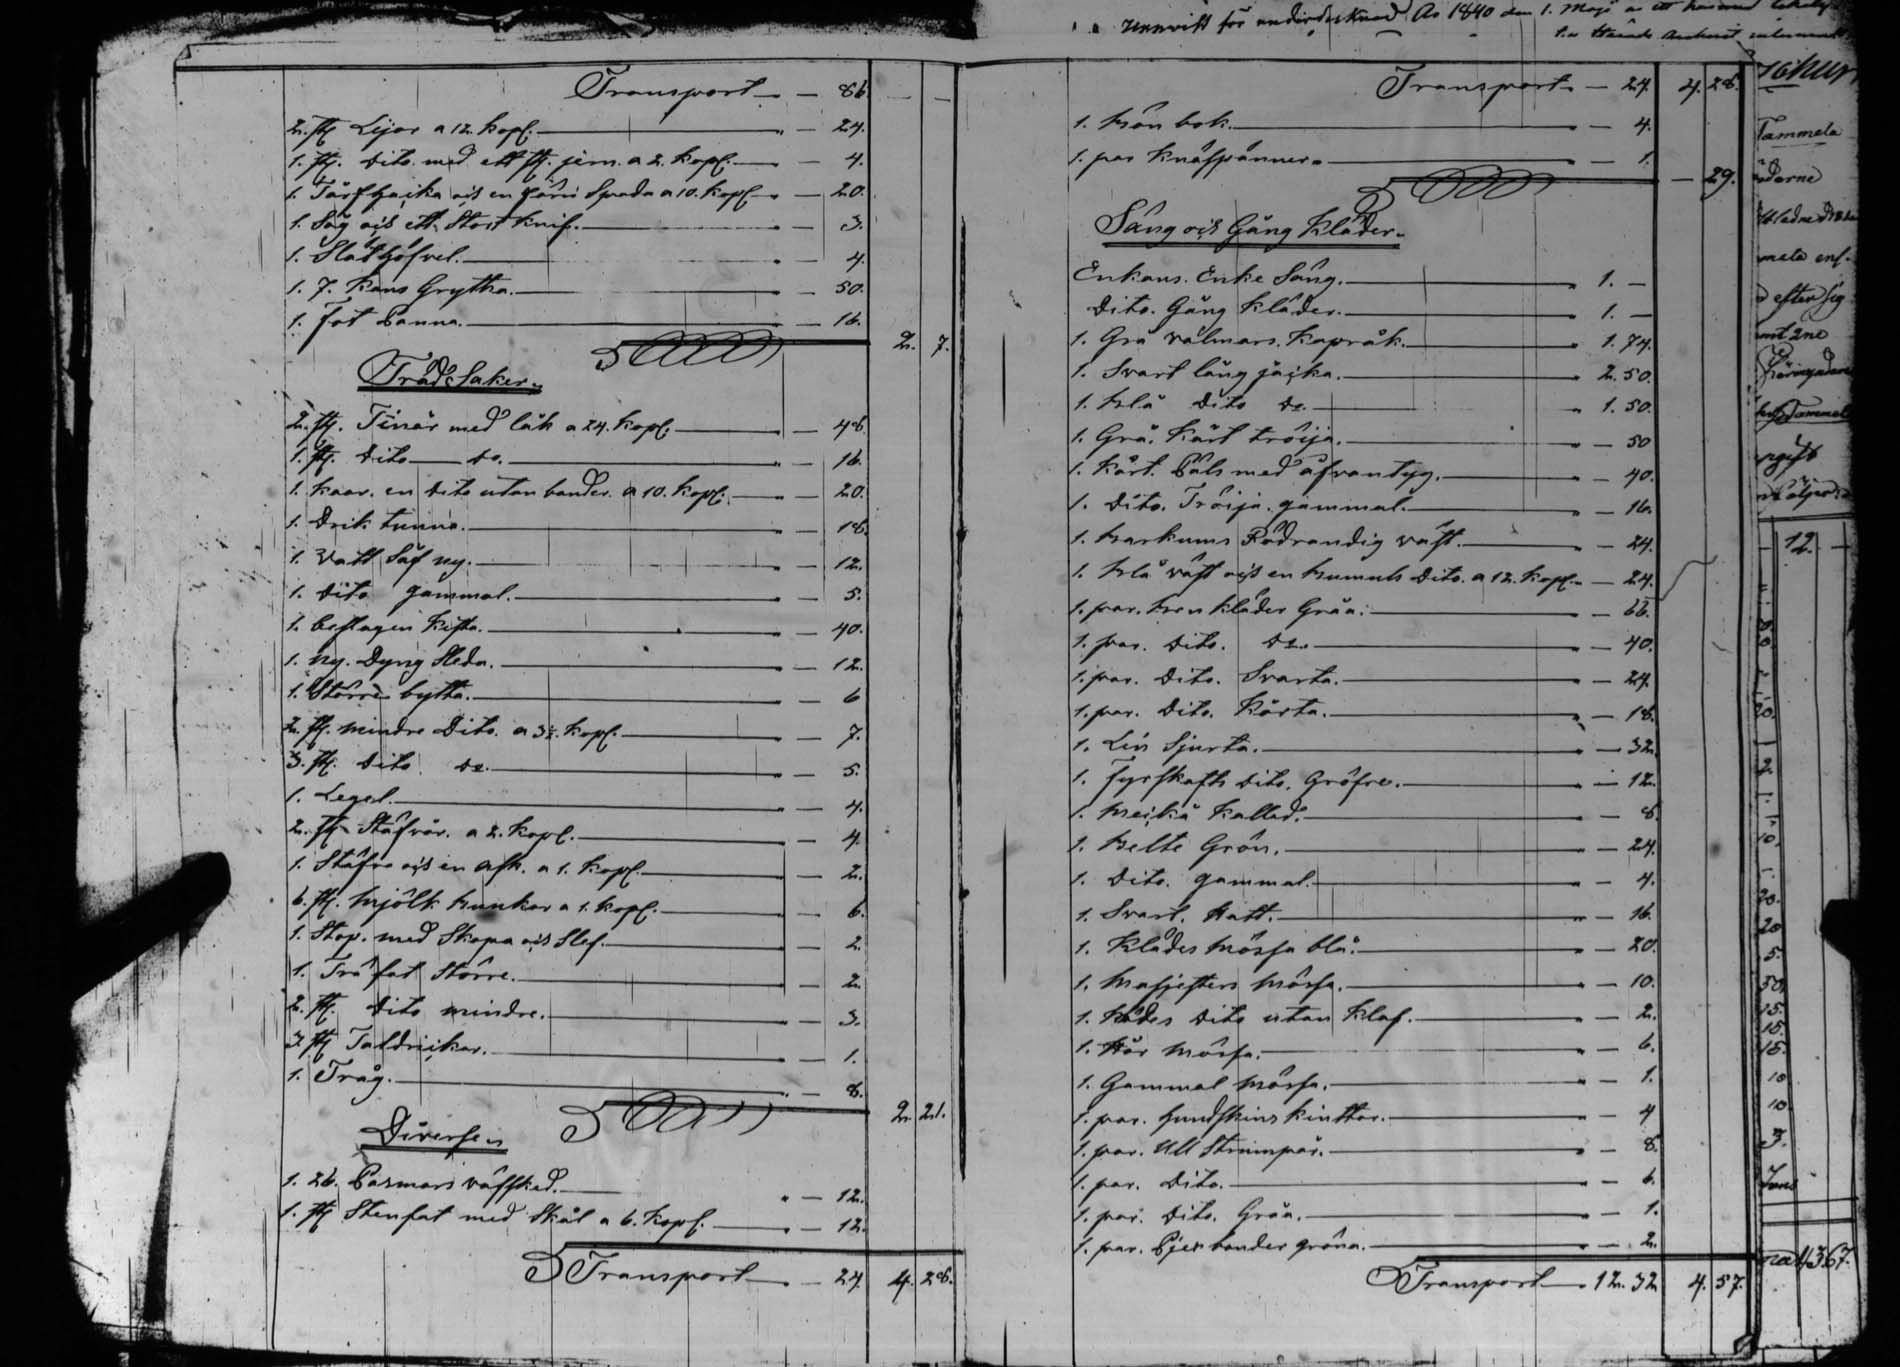 Transport — 86.
2. st. Lijor a 12. kop. — 24.
1. st. Dito med ett st. jern. a 2. kop. — 4.
1. Tärfhacka och en Järn Spada a 10. kop. — 20.
1. Såg och ett Stort knif. — 3.
1. Slät höfvel. — 4.
1. 7. Kans Grytka. — 50.
1. Fot Panna. — 16.
2. 7.
Träd Saker.
2. st. Tinår med låk a 24. kop. — 48.
1. st. Dito Do. — 16.
1. kaar. en Dito utan bander. a 10. kop. — 20.
1. Drik tunna. — 18.
1. Vatt Såf ny. — 12.
1. Dito gammal. — 5.
1. beslagen kista. — 40.
1. ny. Dyng Sleda. — 12.
1. Större bytta. — 6
2. st. mindre Dito. a 3½. kop. — 7.
3. st. Dito Do. — 5.
1. Legel. — 4.
2. st. Stäfvår. a 2. kop. — 4.
1. Stäfva och en Ask. a 1. kop. — 2.
6. st. Mjölk bunkar a 1. kop. — 6.
1. Stop. med Skopa och Slef. — 2.
1. Träfat Större. — 2.
2. st. Dito mindre. — 3.
3. st. Taldrickar. — 1.
1. Tråg. — 8.
2. 21.
Diverse
1. 26. Pasmars väfsked. — 12.
1. st. Stenfat med Skål a 6. kop. — 12.
Transport — 24. 4. 28.
för Ao 1840 den 1. Maji
Transport — 24. 4. 28.
1. bön bok. — 4.
1. par knäspänner. — 1.
— 29.
Säng och Gång Kläder.
Enkans. Enke Säng. 1. —
Dito. Gång Kläder. 1. —
1. Grå valmars. Kapråk. 1. 74.
1. Svart lång jacka. 2. 50.
1. blå Dito Do. 1. 50.
1. Grå. Kårt tröija. — 50
1. kårt. Päls med åfvantyg. — 40.
1. Dito. Tröija. gammal. — 16.
1. barkums Rödrandig väst. — 24.
1. blå väst och en bumuls Dito. a 12. kop. — 24.
1. par. benkläder Gråa. — 66.
1. par. Dito. Do. — 40.
1. par. Dito. Svarta. — 24.
1. par. Dito. Kårta. — 18.
1. Lin Sjurta. — 32
1. Fyrskafts Dito. Gröfre. — 12.
1. kallad. — 8.
1. belte Grön. — 24.
1. Dito. gammal. — 4.
1. Svart. Hatt. — 16.
1. Klädes Mössa blå. — 20.
1. Mössa. — 10.
1. Dito utan Klaf. — 2.
1. Hår Mössa. — 6.
1. Gammal Mössa. — 1.
1. par. hundskins kinttar. — 4
1. par. Ull Strumpår. — 8.
1. par. Dito. — 6.
1. par. Dito. Gråa. — 1.
1. par. bander gröna. — 2.
Transport 12. 32 4. 57.
Tammela
12.
367.